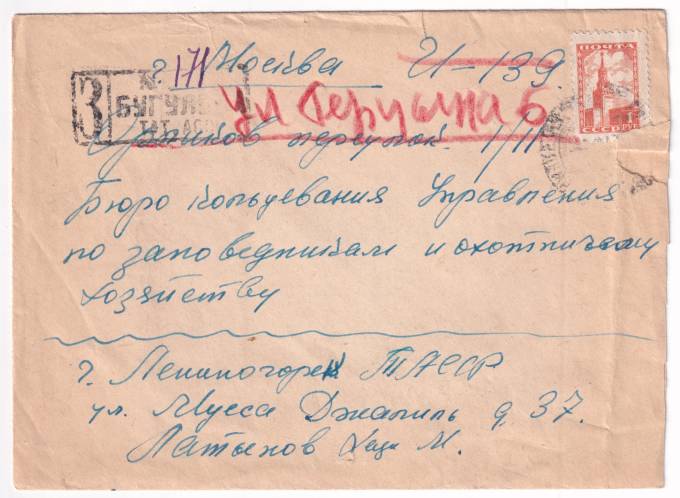 г. Москва И-139
ул Герцена 6
Орликов переулок 1/11
Бюро кольцевания Управления
по заповедникам и охотничьему
хозяйству
г. Лениногорск ТАССР
ул. Мусса Джалиль д. 37.
Латыпов М.
З
№ 171
БУГУЛЬ
ТАТ. АСС
ПОЧТА
СССР